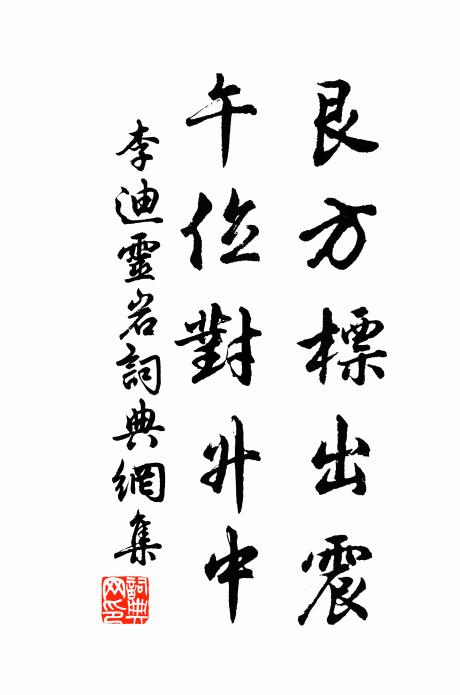 艮方標出震
午位對升中
李迪靈岩詞典網集
詞典網印